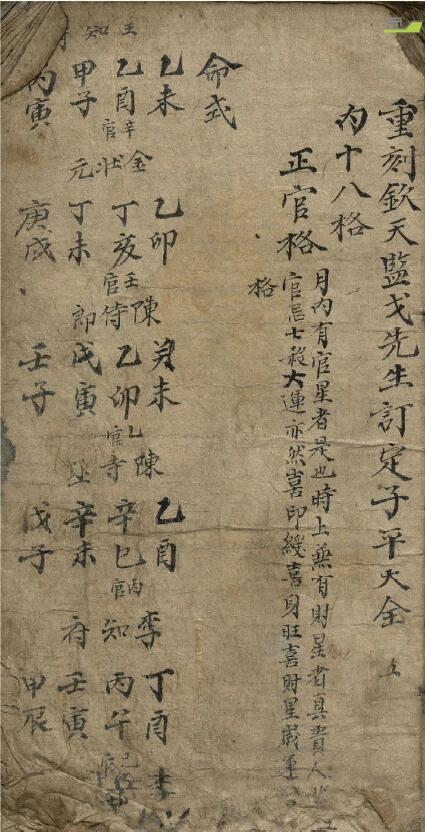 重刻欽天監戈先生訂定子平大全
内十八格
正官格
月内有官星者是也時上兼有財星者真貴人
官忌七殺大運亦然喜印綬喜身旺喜財星歲運
格
命式
王知
乙未 金 乙卯 陳 癸未 陳 乙酉 李 丁酉 李
乙酉 辛官 状 丁亥 壬官 侍 乙卯 乙官 寺 辛巳 丙官 知 丙午 官
甲子 元 丁未 郎 戊寅 丞 辛未 府 壬寅
丙寅 庚戌 壬子 戊子 甲辰